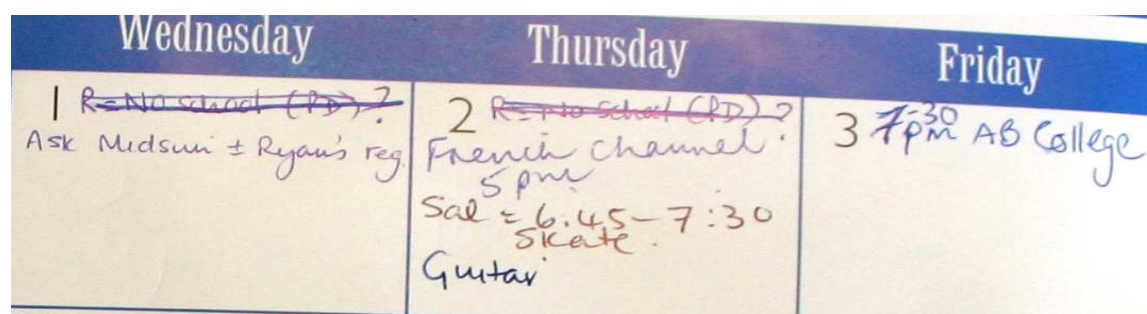 Wednesday Thursday Friday
1 R = No school (PD)?
Ask Midsun ± Ryan's reg.
2 R = No school (PD)?
French channel.
5 pm
Sal = 6.45 - 7:30
Skate.
Guitar
3 7:30
7pm AB College